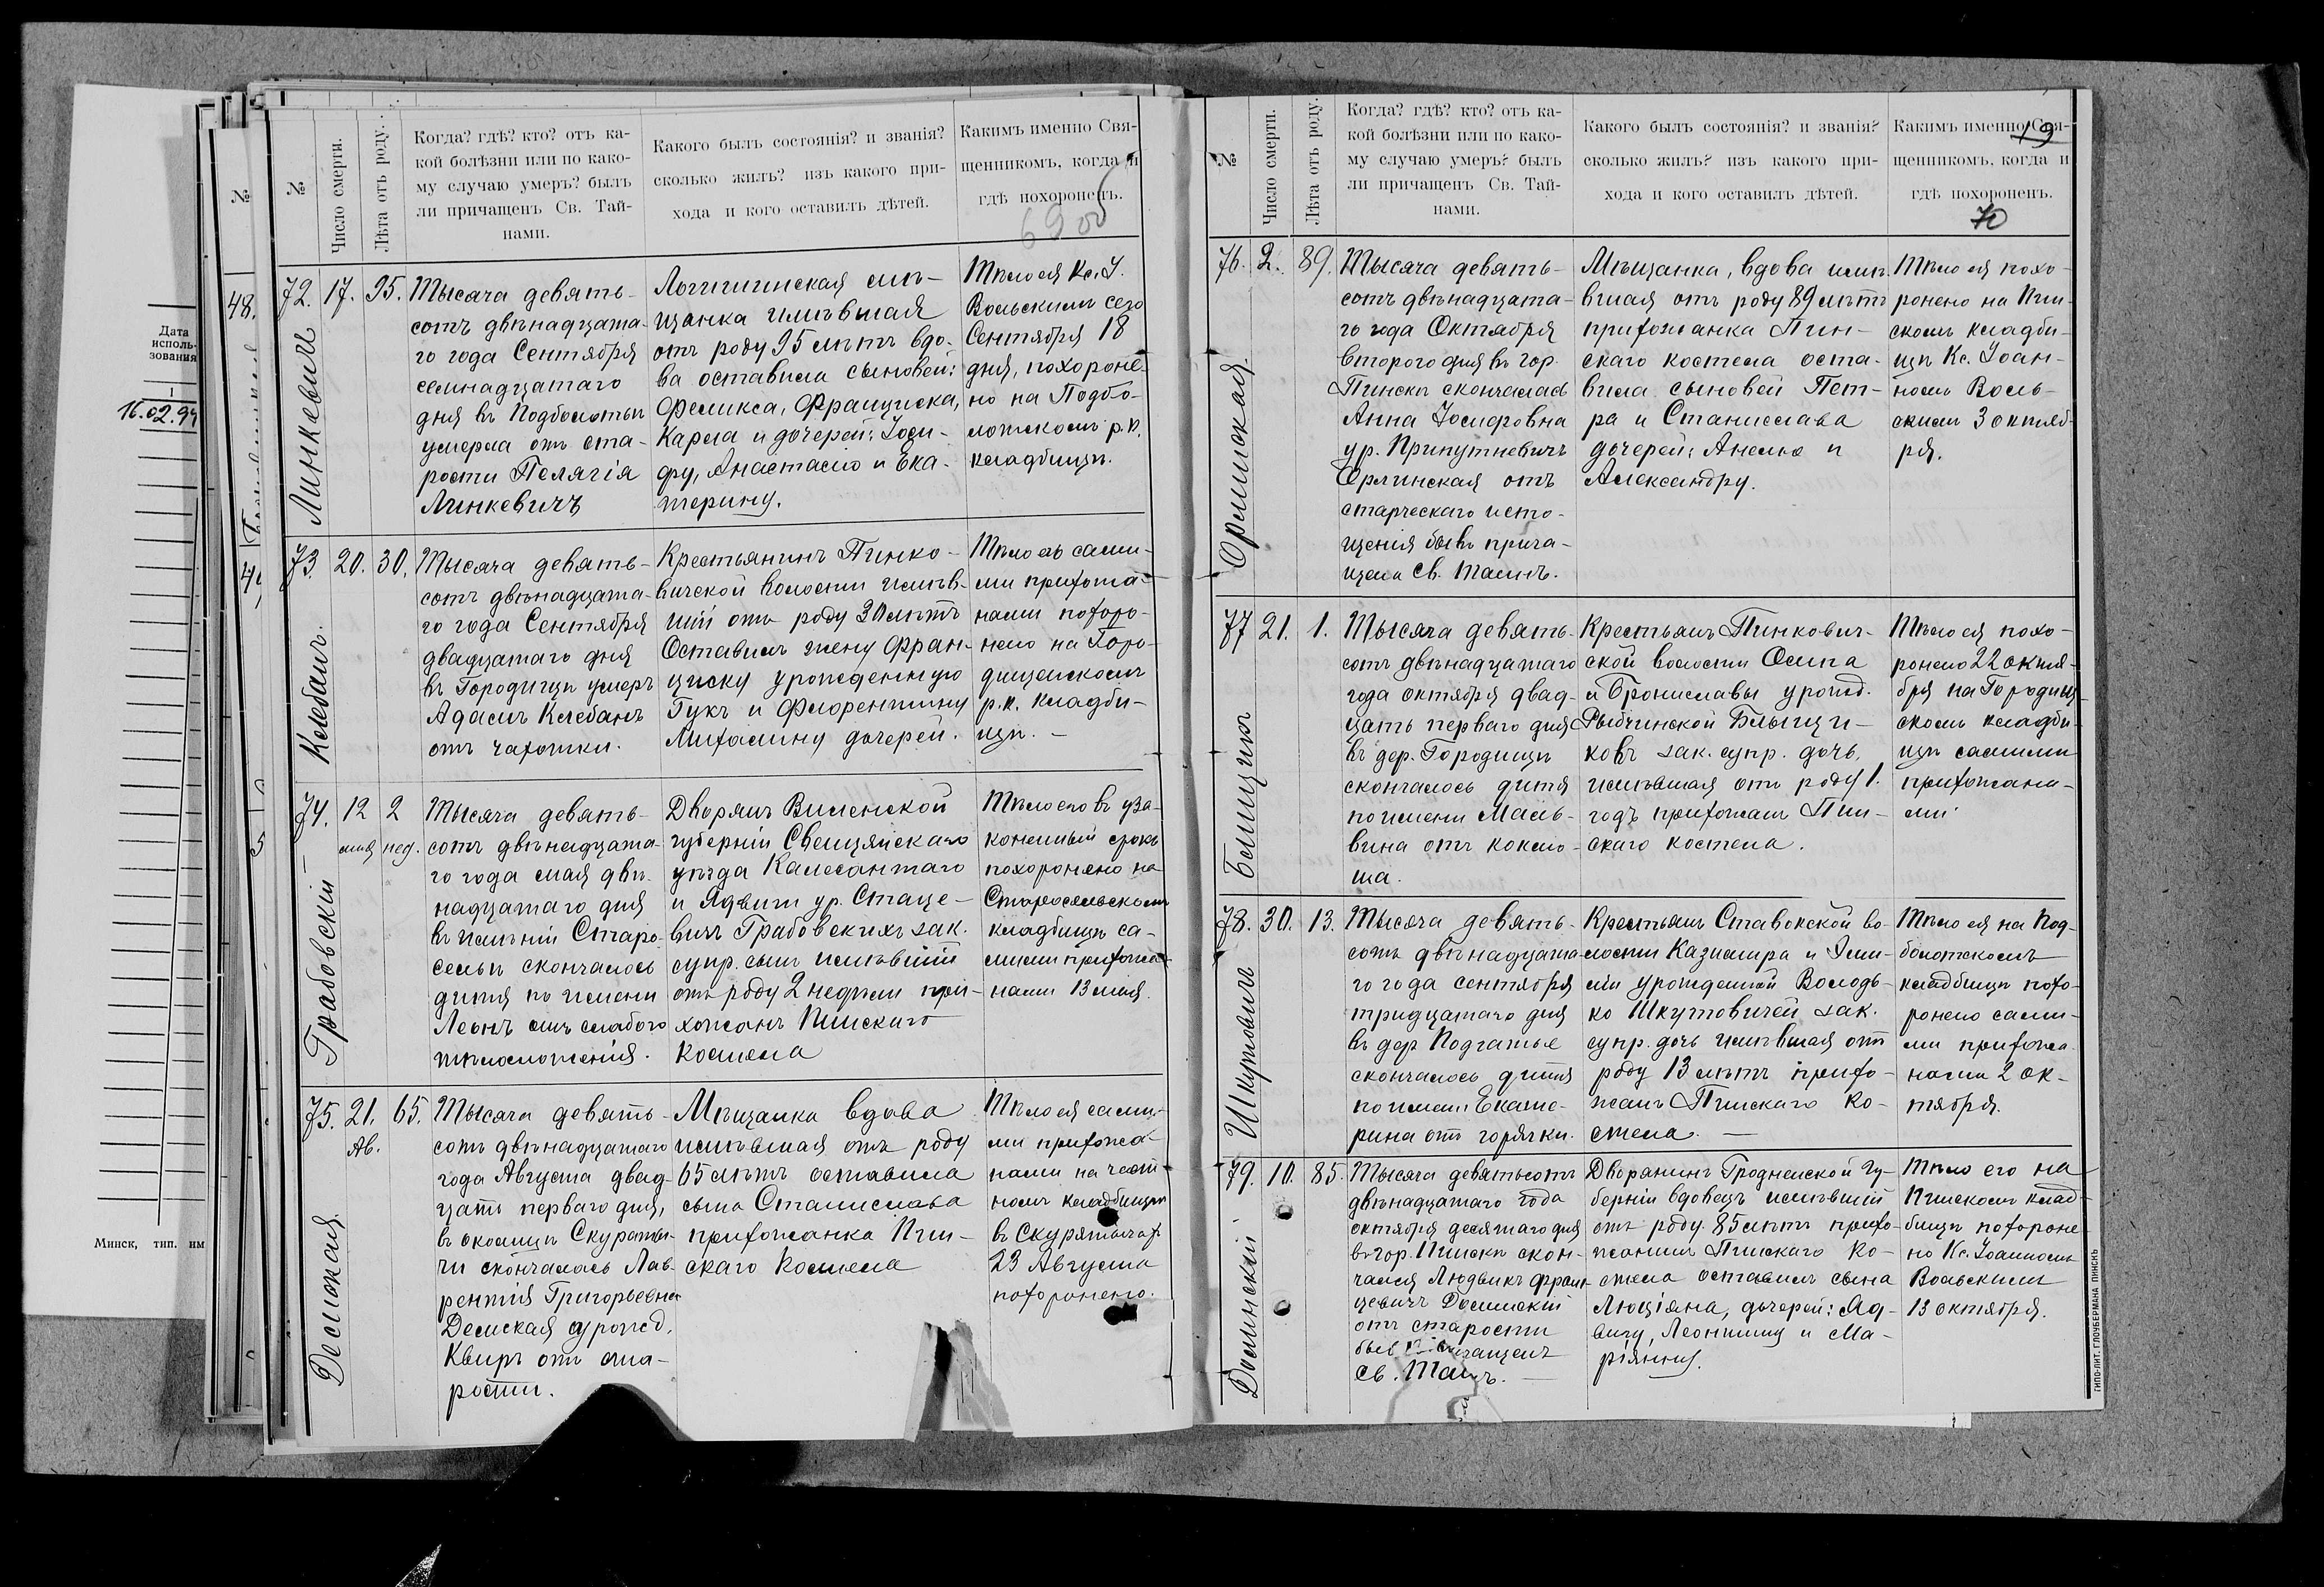 Дата
исполь-
зования
1
16.02.94
Минск, тип. им
№
48.
5
№
Число смерти.
Лѣта отъ роду.
Когда? гдѣ? кто? отъ ка-
кой болѣзни или по како-
му случаю умеръ? былъ
ли причащенъ Св. Тай-
нами.
Какого былъ состоянія? и званія?
сколько жилъ? изъ какого при-
хода и кого оставилъ дѣтей.
Какимъ именно Свя-
щенникомъ, когда и
гдѣ похороненъ.
69
72.
17.
95.
Линкевичъ
Тысяча девять-
сотъ двѣнадцата-
го года Сентября
семнадцатаго
дня въ Подболотьи
умерла отъ ста-
рости Пелягія
Линкевичъ
мѣ-
щанка имѣвшая
отъ роду 95 лѣтъ вдо-
ва оставила сыновей:
Феликса, Франциска,
Карла и дочерей: Юзе-
фу, Анастасію и Ека-
терину.
Тѣло ея Кс. I.
Вольскимъ сего
Сентября 18
дня, похороне-
но на Подбо-
лотскомъ р. к.
кладбищѣ.
73.
20.
30.
Клебанъ.
Тысяча девять-
сотъ двѣнадцата-
го года Сентября
двадцатаго дня
въ Городищѣ умеръ
Адамъ Клебанъ
отъ чахотки.
Крестьянинъ Пинко-
вичской волости имѣв-
шій отъ роду 30 лѣтъ
Оставилъ жену Фран-
циску урожденную
Гукъ и Флорентину
Михалину дочерей.
Тѣло его сами-
ми прихожа-
нами похоро-
нено на Горо-
дищенскомъ
р. к. кладби-
щѣ. —
74.
12
мая
2
нед.
Грабовскій —
Тысяча девять-
сотъ двѣнадцата-
го года мая двѣ-
надцатаго дня
въ имѣніи Старо-
сельи скончалось
дитя по имени
Леонъ отъ слабого
тѣлосложенія.
Дворянъ Виленской
губерніи Свенцянскаго
уѣзда Калесантаго
и Ядвиги ур. Стаце-
вичъ Грабовскихъ зак.
супр. сынъ имѣвшій
отъ роду 2 недѣли при-
хожанъ Пинскаго
Костела
Тѣло его въ уза-
коненный срокъ
похоронено на
Старосельскомъ
кладбищѣ са-
мими прихожа-
нами 13 мая.
75.
21.
Ав.
65.
Демская
Тысяча девять-
сотъ двѣнадцатаго
года Августа двад-
цать перваго дня,
въ околицѣ Скураты-
чи скончалась Лав-
рентія Григорьевна
Демская урожд.
Квиръ отъ ста-
рости.
Мѣщанка вдова
имѣвшая отъ роду
65 лѣтъ оставила
сына Станислава
прихожанка Пин-
скаго Костела
Тѣло ея сами-
ми прихожа-
нами на част-
номъ кладбищѣ
въ Скурятычахъ
23 Августа
похоронено.
№
Число смерти.
Лѣта отъ роду.
Когда? гдѣ? кто? отъ ка-
кой болѣзни или по како-
му случаю умеръ? былъ
ли причащенъ Св. Тай-
нами.
Какого былъ состоянія? и званія?
сколько жилъ? изъ какого при-
хода и кого оставилъ дѣтей.
Какимъ именно Свя-
щенникомъ, когда и
гдѣ похороненъ.
19
70
76.
2.
89.
Орлинская.
Тысяча девять-
сотъ двѣнадцата-
го года Октября
второго дня въ гор.
Пинскѣ скончалась
Анна Іосифовна
ур. Припутневичъ
Орлинская отъ
старческаго исто-
щенія бывъ прича-
щена Св. Таинъ.
Мѣщанка, вдова имѣ-
вшая отъ роду 89 лѣтъ
прихожанка Пин-
скаго костела оста-
вила сыновей Пет-
ра и Станислава
дочерей: Анелю и
Александру.
Тѣло ея похо-
ронено на Пин-
скомъ кладби-
щѣ Кс. Іоан-
номъ Воль-
скимъ 3 октяб-
ря.
77
21.
1.
Блищикъ
Тысяча девять-
сотъ двѣнадцатаго
года октября двад-
цать перваго дня
въ дер. Городищѣ
скончалось дитя
по имени Маль-
вина отъ коклю-
ша.
Крестьянъ Пинкович-
ской волости Осипа
и Брониславы урожд.
Рыбчинской Блищи-
ковъ зак. супр. дочь,
имѣвшая отъ роду 1.
годъ прихожанъ Пин-
скаго костела.
Тѣло ея похо-
ронено 22 октя-
бря на Городищ-
скомъ кладби-
щѣ самими
прихожана-
ми.
78.
30.
13.
Шкутовичъ
Тысяча девять-
сотъ двѣнадцата-
го года сентября
тридцатаго дня
въ дер. Подгатье
скончалось дитя
по имени Екате-
рина отъ горячки.
Крестьянъ Ставокской во-
лости Казимира и Эми-
ліи урожденной Володь-
ко Шкутовичей зак.
супр. дочь имѣвшая отъ
роду 13 лѣтъ прихо-
жанъ Пинскаго ко-
стела. —
Тѣло ея на Под-
болотскомъ
кладбищѣ похо-
ронено сами-
ми прихожа-
нами 2 ок-
тября.
79.
10.
85.
Долинскій.
Тысяча девятьсотъ
двѣнадцатаго года
октября десятаго дня
въ гор. Пинскѣ скон-
чался Людвикъ Франц-
цевичъ Долинскій
отъ старости
бывъ причащенъ
Св. Таинъ. —
Дворянинъ Гродненской гу-
берніи вдовецъ имѣвшій
отъ роду 85 лѣтъ прихо-
жанинъ Пинскаго ко-
стела оставилъ сына
Люціяна, дочерей: Яд-
вигу, Леонтину и Ма-
ріянну.
Тѣло его на
Пинскомъ клад-
бищѣ похороне-
но Кс. Іоанномъ
Вольскимъ
13 октября.
ТИПО-ЛИТ. ГЛОУБЕРМАНА ПИНСКЪ